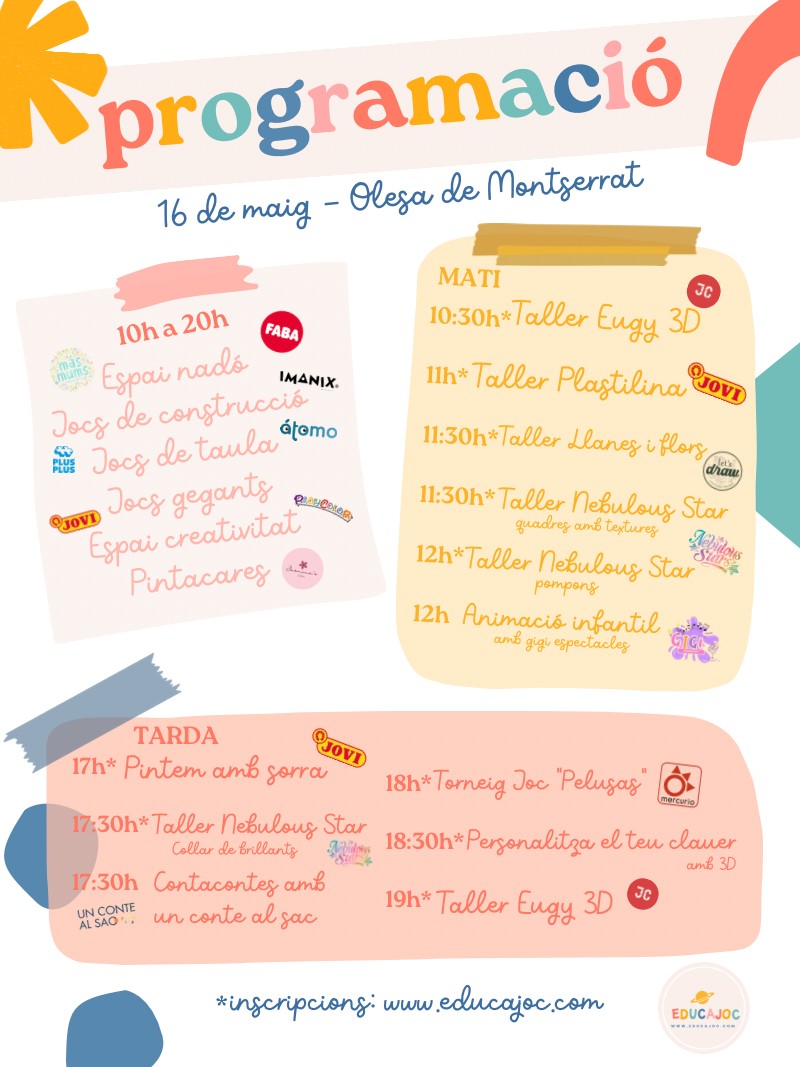 programació
16 de maig - Olesa de Montserrat
10h a 20h
FABA
más mums
Espai nadó
IMANIX
Jocs de construcció
átomo
PLUS PLUS
Jocs de taula
Jocs gegants
JOVI
PlayColor
Espai creativitat
Pintacares
MATI
JC
10:30h*Taller Eugy 3D
11h*Taller Plastilina
JOVI
11:30h*Taller Llanes i flors
let's draw
11:30h*Taller Nebulous Star
quadres amb textures
Nebulous Stars
12h*Taller Nebulous Star
pompons
12h Animació infantil
amb gigi espectacles
GIGI
TARDA
JOVI
17h* Pintem amb sorra
17:30h*Taller Nebulous Star
Collar de brillants
Nebulous Stars
17:30h Contacontes amb
un conte al sac
UN CONTE
AL SAC
18h*Torneig Joc "Pelusas"
mercurio
18:30h*Personalitza el teu clauer
amb 3D
19h*Taller Eugy 3D
JC
*inscripcions: www.educajoc.com
EDUCAJOC
WWW.EDUCAJOC.COM